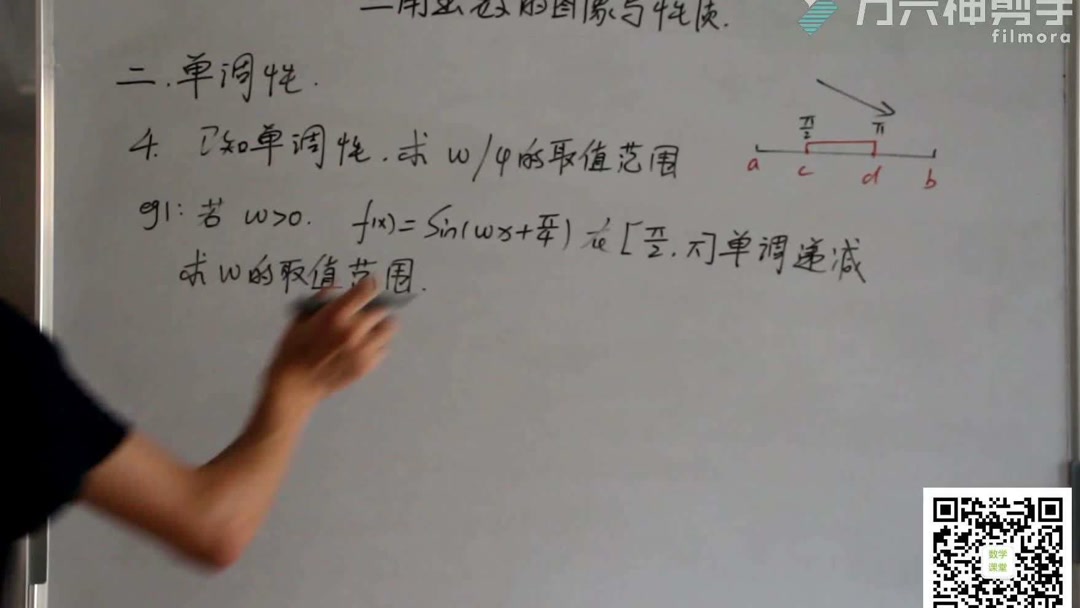 三角函数的图象与性质.
万兴神剪手
filmora
二.单调性.
4. 已知单调性.求 w/φ的取值范围
π/2 π
a c d b
eg1:若 w>0. f(x)=Sin(wx+π/4)在[π/2,π]单调递减
求w的取值范围.
数学
课堂